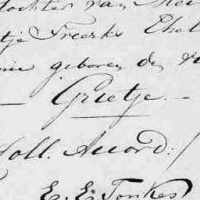 dochter van
tje Freerks
geboren den
— Grietje —
Holl. Accord:/
E. E. Tonkes